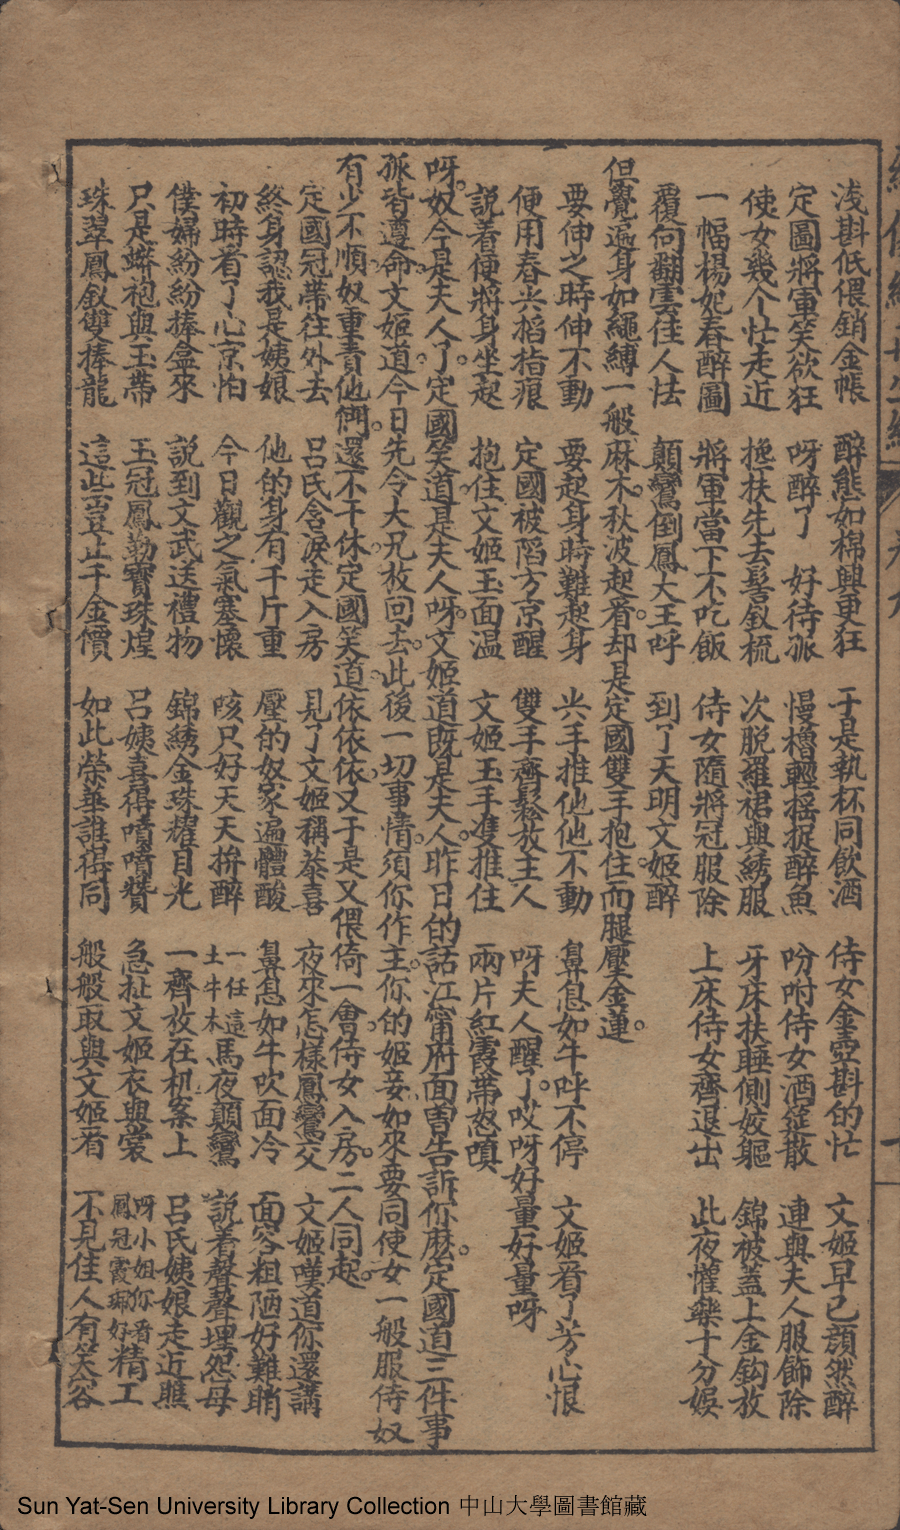 浅斟低偎銷金帳　醉態如棉興更狂　于是執杯同飲酒　侍女金壺斟的忙　文姬早已顏然醉
定圖將軍笑欲狂　呀醉了　好待孤慢櫓輕搖捉醉魚　吩咐侍女酒筵散　連與夫人服飾除
使女幾个忙走近　攙扶先去髻釵梳　次脫羅裙與綉服　牙床扶睡側姣軀　錦被蓋上金鈎放
一幅楊妃春醉圖　將軍當下不吃飯　侍女隨將冠服除　上床侍女齊退出　此夜懽樂十分娛
覆何翻雲佳人怯　顛鸞倒鳳大王呼　到了天明文姬醉
但覺遍身如繩縛一般麻木秋波起看却是定國雙手抱住而腿壓金蓮
要伸之時伸不動　要起身時難起身　共手推他他不動　鼻息如牛呼不停　文姬看了芳心恨
便用春尖搯指痕　定國被搯方京醒　雙手齊鬆放主人　呀夫人醒了哎呀好量好量呀
說着便將身坐起　抱住文姬玉面温　文姬玉手隻推住　兩片紅霞帶怒嗔
呀奴今是夫人了定國笑道是夫人呀文姬道既是夫人昨日的話江甯府面害告訴你麼定國道三件事
孤皆遵命文姬道今日先令大兄放回去此後一切事情須你作主你的姬妾如來要同使女一般服侍奴
有少不順奴重責他們還不干休定國笑道依依依又于是又偎倚一會侍女入房二人同起
定國冠帶往外去　呂氏含淚走入房　見了文姬稱恭喜　夜來怎樣鳳鸞交　文姬嘆道你還講
終身認我是姨娘　他的身有千斤重　壓的奴家遍體酸　鼻息如牛吹面冷　面容粗陋好難睄
初時看了心京怕　今日觀之氣塞懷　咳只好天天拚醉　一任這土牛木馬夜顛鸞　說着聲聲埋怨母
僕婦紛紛捧盒來　說到文武送禮物　錦綉金珠耀目光　一齊放在初案上　呂氏姨娘走近瞧
只是蟒袍與玉帶　玉冠鳳勒寶珠煌　呂姨喜得嘖嘖贊　急扯文姬衣與裳　呀小姐你看鳳冠霞珮好精工
珠翠鳳釵雙捧龍　這些豈止千金價　如此榮華誰得同　般般取與文姬看　不見佳人有笑容